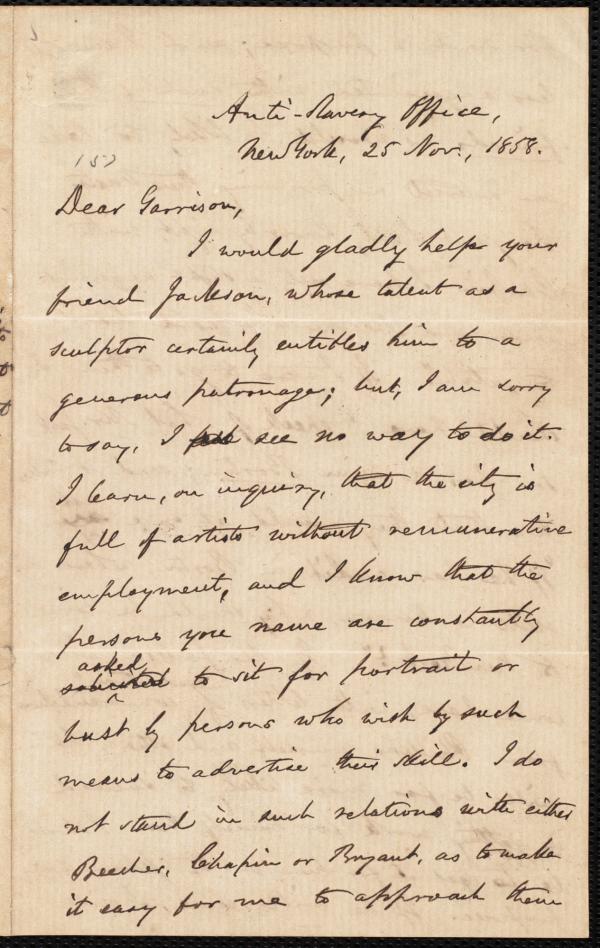 Anti-Slavery Office,
New York, 25 Nov., 1858.
Dear Garrison,
I would gladly help your
friend Jackson, whose talent as a
sculptor certainly entitles him to a
generous patronage; but, I am sorry
to say, I see no way to do it.
I learn, on inquiry, that the city is
full of artists without remunerative
employment, and I know that the
persons you name are constantly
asked
solicited to sit for portrait or
bust by persons who wish by such
means to advertise their skill. I do
not stand in such relations with either
Beecher, Chapin or Bryant, as to make
it easy for me to approach them